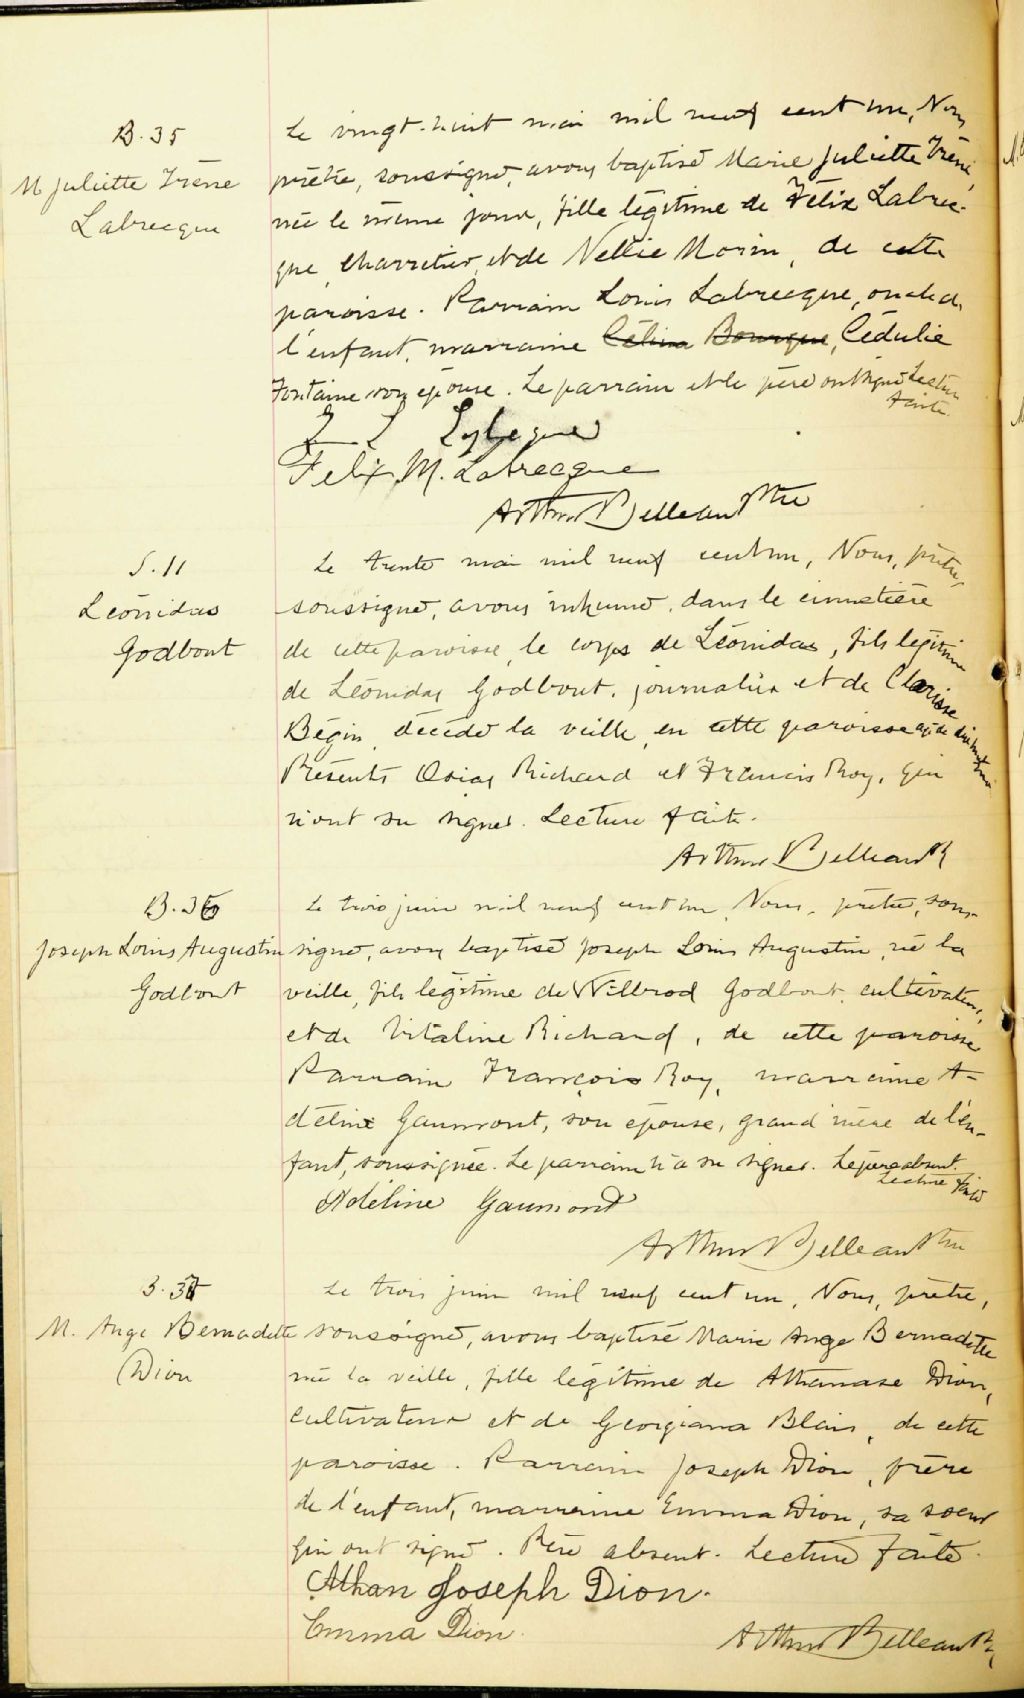 B. 35
M Juliette Irène
Labrecque
Le vingt-huit mai mil neuf cent un, Nous
prêtre, soussigné, avons baptisé Marie Juliette Irène,
née le même jour, fille légitime de Félix Labrec-
que, charretier, et de Nellie Morin, de cette
paroisse. Parrain Louis Labrecque, oncle de
l'enfant, marraine Célina Bourque, Cédulie
Fontaine son épouse. Le parrain et le père ont signé Lecture
faite.
L
Felix M. Labrecque
Arthur Belleau Ptre
S. 11
Léonidas
Godbout
Le trente mai mil neuf cent un, Nous, prêtre,
soussigné, avons inhumé, dans le cimetière
de cette paroisse, le corps de Léonidas, fils légitime
de Léonidas Godbout, journalier et de Clarisse
Bégin, décédé la veille, en cette paroisse agé de
Présents Osias Richard et Francis Roy, qui
n'ont su signer. Lecture faite.
Arthur Belleau P
B. 36
Joseph Louis Augustin
Godbout
Le trois juin mil neuf cent un, Nous, prêtre, sous-
signé, avons baptisé Joseph Louis Augustin, né la
veille, fils légitime de Wilbrod Godbout, cultivateur,
et de Vitaline Richard, de cette paroisse
Parrain François Roy, marraine A-
déline Gaumont, son épouse, grand'mère de l'en-
fant, soussignée. Le parrain n'a su signer. Le père absent.
Lecture faite
Adéline Gaumond
Arthur Belleau Ptre
B. 37
M. Ange Bernadette
Dion
Le trois juin mil neuf cent un, Nous, prêtre,
soussigné, avons baptisé Marie Ange Bernadette
née la veille, fille légitime de Athanase Dion,
cultivateur et de Georgiana Blais, de cette
paroisse. Parrain Joseph Dion, frère
de l'enfant, marraine Emma Dion, sa soeur
qui ont signé. Père absent. Lecture faite.
Athan Joseph Dion.
Emma Dion.
Arthur Belleau P